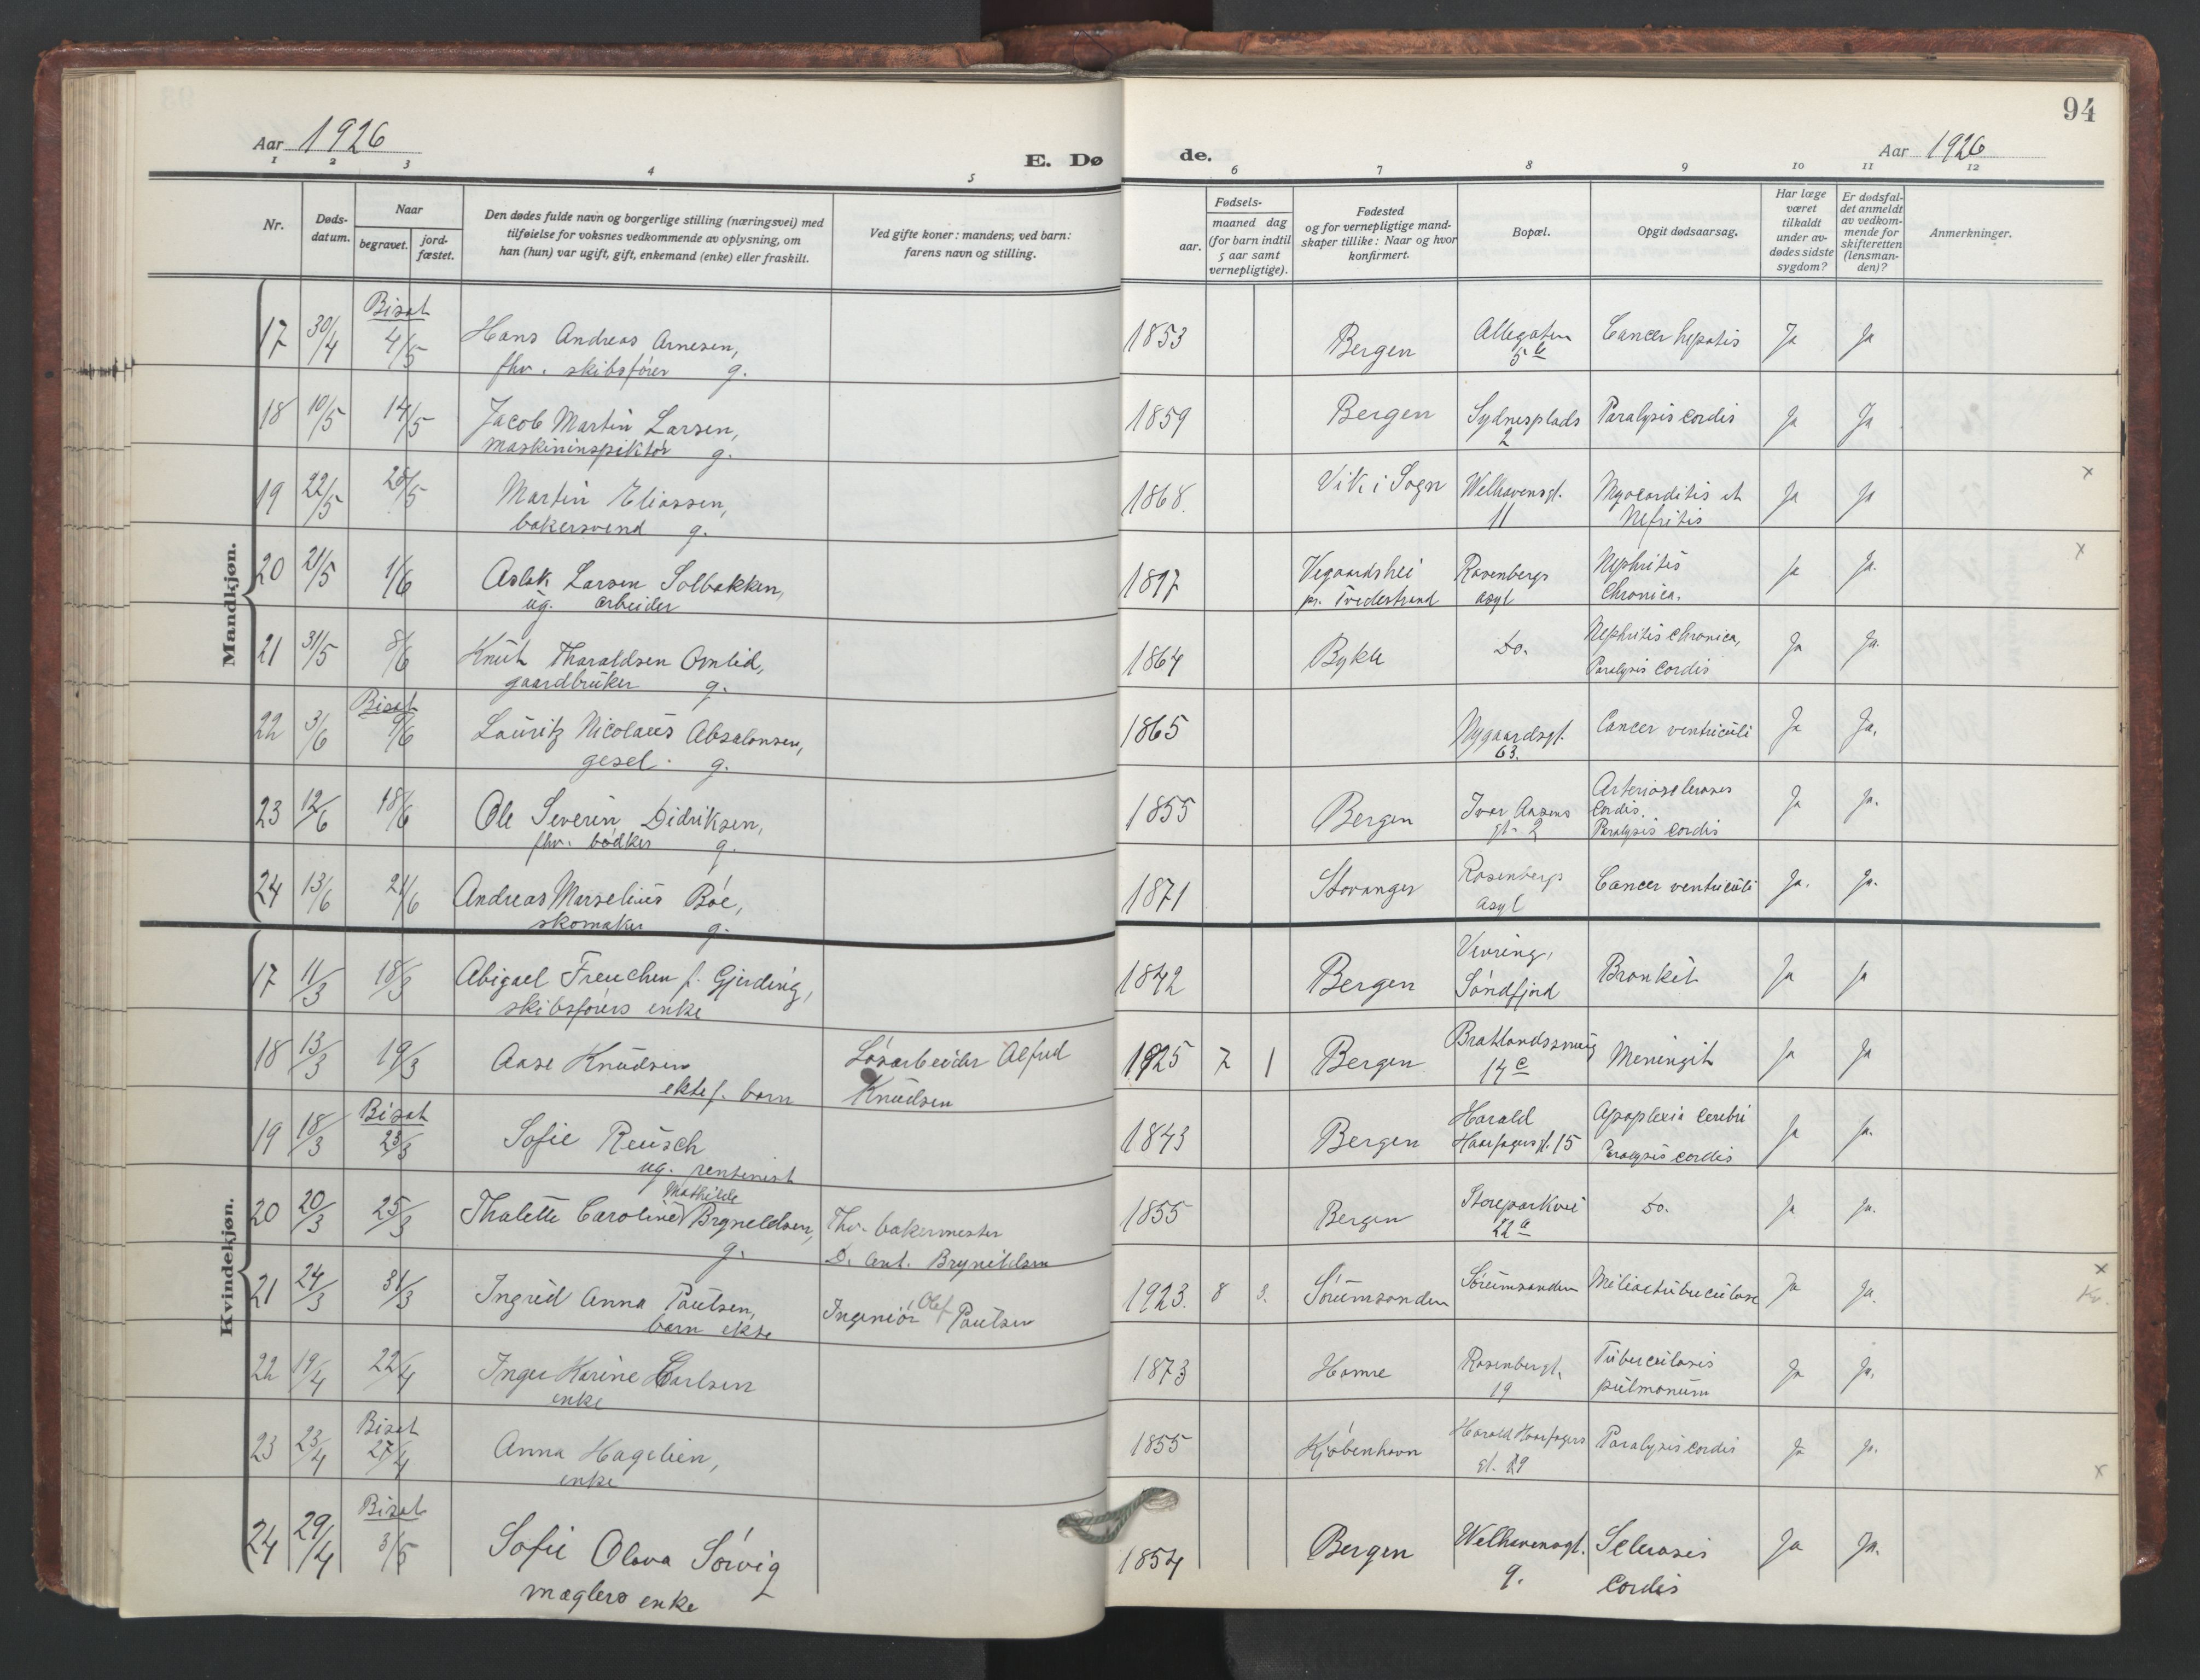 94
Aar 1926
E. Dø de.
Aar 1926
1 2 3 4 5 6 7 8 9 10 11 12
Nr.
Døds-
datum.
Naar
begravet.
jord-
fæstet.
Den dødes fulde navn og borgerlige stilling (næringsvei) med
tilføielse for voksnes vedkommende av oplysning, om
han (hun) var ugift, gift, enkemand (enke) eller fraskilt.
Ved gifte koner: mandens; ved barn:
farens navn og stilling.
Fødsels-
aar.
maaned dag
(for barn indtil
5 aar samt
vernepligtige).
Fødested
og for vernepligtige mand-
skaper tillike: Naar og hvor
konfirmert.
Bopæl.
Opgit dødsaarsag.
Har læge
været
tilkaldt
under av-
dødes sidste
sygdom?
Er dødsfal-
det anmeldt
av vedkom-
mende for
skifteretten
(lensman-
den)?
Anmerkninger.
Mandkjøn.
Bisat
17 30/4 4/5 Hans Andreas Arnesen, 1853 Bergen Allegaten Cancer hepatis Ja Ja
fhv. skibsfører g. 5 b
18 10/5 14/5 Jacob Martin Larsen, 1859 Bergen Sydnesplads Paralysis cordis Ja Ja
maskininspektør g. 2
19 22/5 28/5 Martin Eliassen, 1868. Vik i Sogn Welhavensgt. Myocarditis et Ja Ja x
bakersvend g. 11 Nefritis
20 21/5 1/6 Aslak Larsen Solbakken, 1897 Vegaardshei Rosenbergs Nephritis Ja Ja. x
ug. arbeider pr. Tvedestrand asyl Chronica.
21 31/5 8/6 Knut Tharaldsen Omlid, 1864 Bykle Do. Nephritis Chronica, Ja Ja.
gaardbruker g. Paralysis cordis
Bisat
22 3/6 9/6 Lauritz Nicolaus Absalonsen, 1865 Nygaardsgt. Cancer ventriculi Ja Ja.
gesel. g. 63.
23 12/6 18/6 Ole Severin Didriksen, 1855 Bergen Ivar Aasens Arteriosclerosis Ja Ja.
fhv. bødker g. gt. 2 cordis. Paralysis cordis
24 13/6 21/6 Andreas Marselius Bøe, 1871 Stavanger Rosenbergs Cancer ventriculi Ja. Ja.
skomaker g. asyl
Kvindekjøn.
17 11/3 18/3 Abigael Freuchen f. Gjerding, 1842 Bergen Vevring, Bronkit Ja Ja
skibsførers enke Søndfjord
18 13/3 19/3 Aase Knudsen Løsarbeider Alfred 1925 7 1 Bergen Brattlandssmug Meningit Ja Ja
ektef. barn Knudsen 14 c
Bisat
19 18/3 23/3 Sofie Reusch 1843 Bergen Harald Apoplexia cerebri Ja Ja.
ug. rentenist Haarfagersgt. 15 Paralysis cordis
Mathilde
20 20/3 25/3 Thalette Caroline Bryneldsen, Fhv. bakermester 1855 Bergen Storeparkvei Do. Ja Ja.
g. D. Ant. Bryneldsen 22 a
21 24/3 31/3 Ingrid Anna Paulsen, Ingeniør Olef Paulsen 1923. 8 3. Sørumsanden Sørumsanden Miliærtuberculose Ja Ja. x
barn ekte
22 19/4 22/4 Inger Karine Carlsen 1873 Hamre Rosenbergt. Tuberculosis Ja Ja.
enke 19 pulmonum
Bisat
23 23/4 27/4 Anna Hagelien, 1855 Kjøbenhavn Harald Haarfagers Paralysis cordis Ja Ja.
enke gt. 29 x
Bisat
24 29/4 3/5 Sofie Olava Sørvig 1854 Bergen Welhavensgt. Sclerosis Ja Ja.
mæglers enke 9. cordis